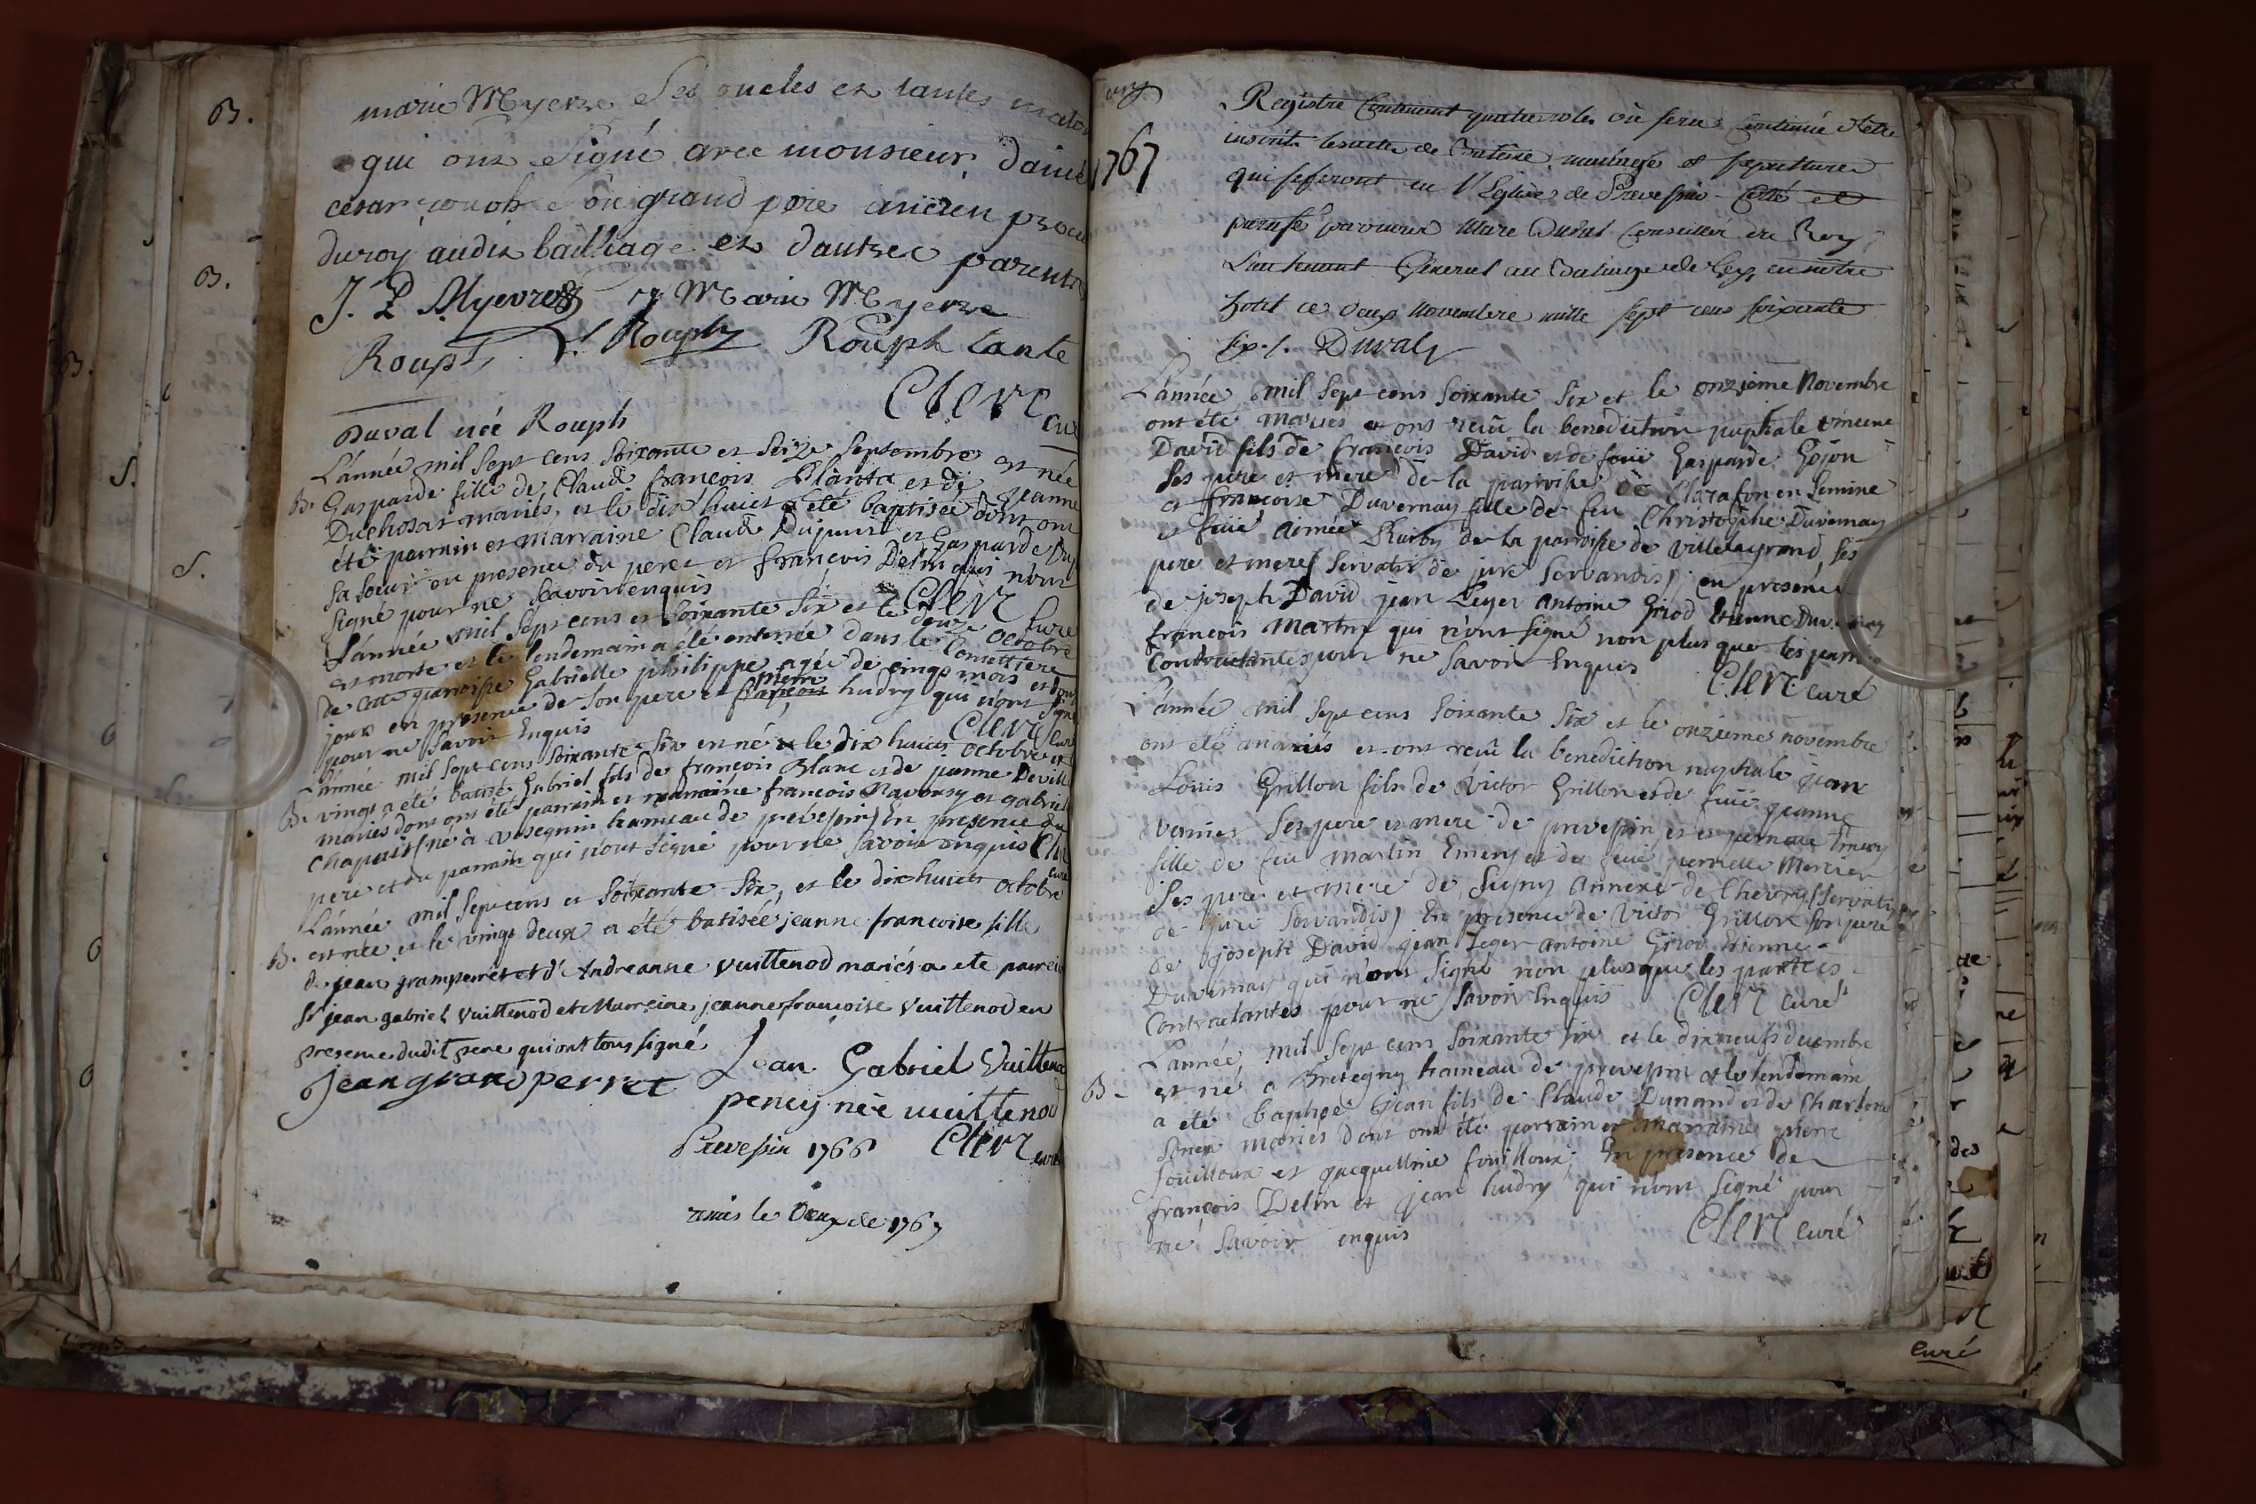 marie Myevre Ses oncles et tantes
qui ont Signé avec monsieur
cesar rouph Son grand pere ancien
du roy audit bailliage et dautres parents
J. P. Myevre Marie Myevre
Rouph Rouph Rouph tante
Duval née Rouph Clerc curé
L'année mil Sept cens Soixante et Seize Septembre est née
B. Gasparde fille de Claude françois Planta et de jeanne
Duchosat mariés, et le dix huict a été baptisée dont ont
été parrain et marraine Claude Dujouvre et Gasparde
Sa soeur en presence du pere et françois Delin qui n'ont
Signé pour ne Scavoir enquis Clerc Curé
L'année mil Sept cens et Soixante Six et le douze octobre
est morte et le lendemain a été enterrée dans le Cimettiere
de cette parroisse Gabrielle philippe agée de cinq mois et
jour en presence de Son pere et pierre hudry qui n'ont Signé
pour ne Savoir Enquis Clerc Curé
L'année mil Sept cens Soixante Six est né le dix huict octobre et
B. vingt a été batisé Gabriel fils de françois Blanc et de jeanne Deville
mariés dont ont été parrain et maraine françois Ravoisy et gabriel
Chapuis (né à Vesegnin hameau de prévésin) En presence du
pere et du parrain qui n'ont Signé pour ne Savoir enquis Clerc curé
L'année mil Sept cens et Soixante Six, et le dix huict octobre
B. est née, et le vingt deux a été batisée jeanne francoise fille
de jean gramperret et d'Andreanne Vuittenod mariés a ete parrein
Sr jean gabriel Vuittenod et Marreine jeanne francoise Vuittenod en
presence dudit pere qui ont tous signé
Jean grandperret Jean Gabriel Vuittenod
peney née vuittenod
Prevessin 1766 Clerc curé
remis le Deux de 1767
1767
Registre Contenant quatre roles où sera Continué d'etre
inscrit les actes de Bateme, mariage et sepulture
qui se feront en l'Eglise de Prevessin - Cotté et
paraffé par nous Marc Duval Conseiller du Roy,
Lieutenant General au Bailiage de Gex, en notre
hotel ce deux Novembre mille sept cens soixante
six./. Duval
L'année mil Sept cens Soixante Six et le onzieme Novembre
ont été mariés et ont reçû la benediction nuptiale
David fils de françois David et de feue Gasparde Gojon
Ses pere et mere de la parroisse de Clarafon en Semine
et françoise Duvernay fille de feu Christophe Duvernay
et feue Aimée de la parroisse de Villelagrand, Ses
pere et mere (Servatis de jure Servandis) en presence
de joseph David jean Leger Antoine Girod Etienne Duvernay
françois Martin qui n'ont Signé non plus que les parties
Contractantes pour ne Savoir Enquis Clerc curé
L'année mil Sept cens Soixante Six et le onzieme novembre
ont été mariés et ont reçû la benediction nuptiale jean
Louis Grillon fils de Victor Grillon et de feue jeanne
Vannier Ses pere et mere de prevessin et et pernette Emery
fille de feu Martin Emery et de feue pernette Mercier
Ses pere et mere de Segny Annexe de Chevry (Servatis
de jure Servandis) En presence de Victor Grillon Son pere
de joseph David jean Leger Antoine Girod Etienne
Duvernay qui n'ont Signé non plus que les parties
Contractantes pour ne Savoir Enquis Clerc curé
L'année mil Sept cens Soixante Six et le dixneuf decembre
B. est né a Bretegny hameau de prevessin et le lendemain
a été baptisé jean fils de Claude Dunand et de Charlotte
mariés dont ont été parrain et marraine pierre
fouilloux et jacquelline fouilloux; En presence de
françois Delin et jean hudry qui n'ont Signé pour
ne Savoir enquis Clerc curé
curé